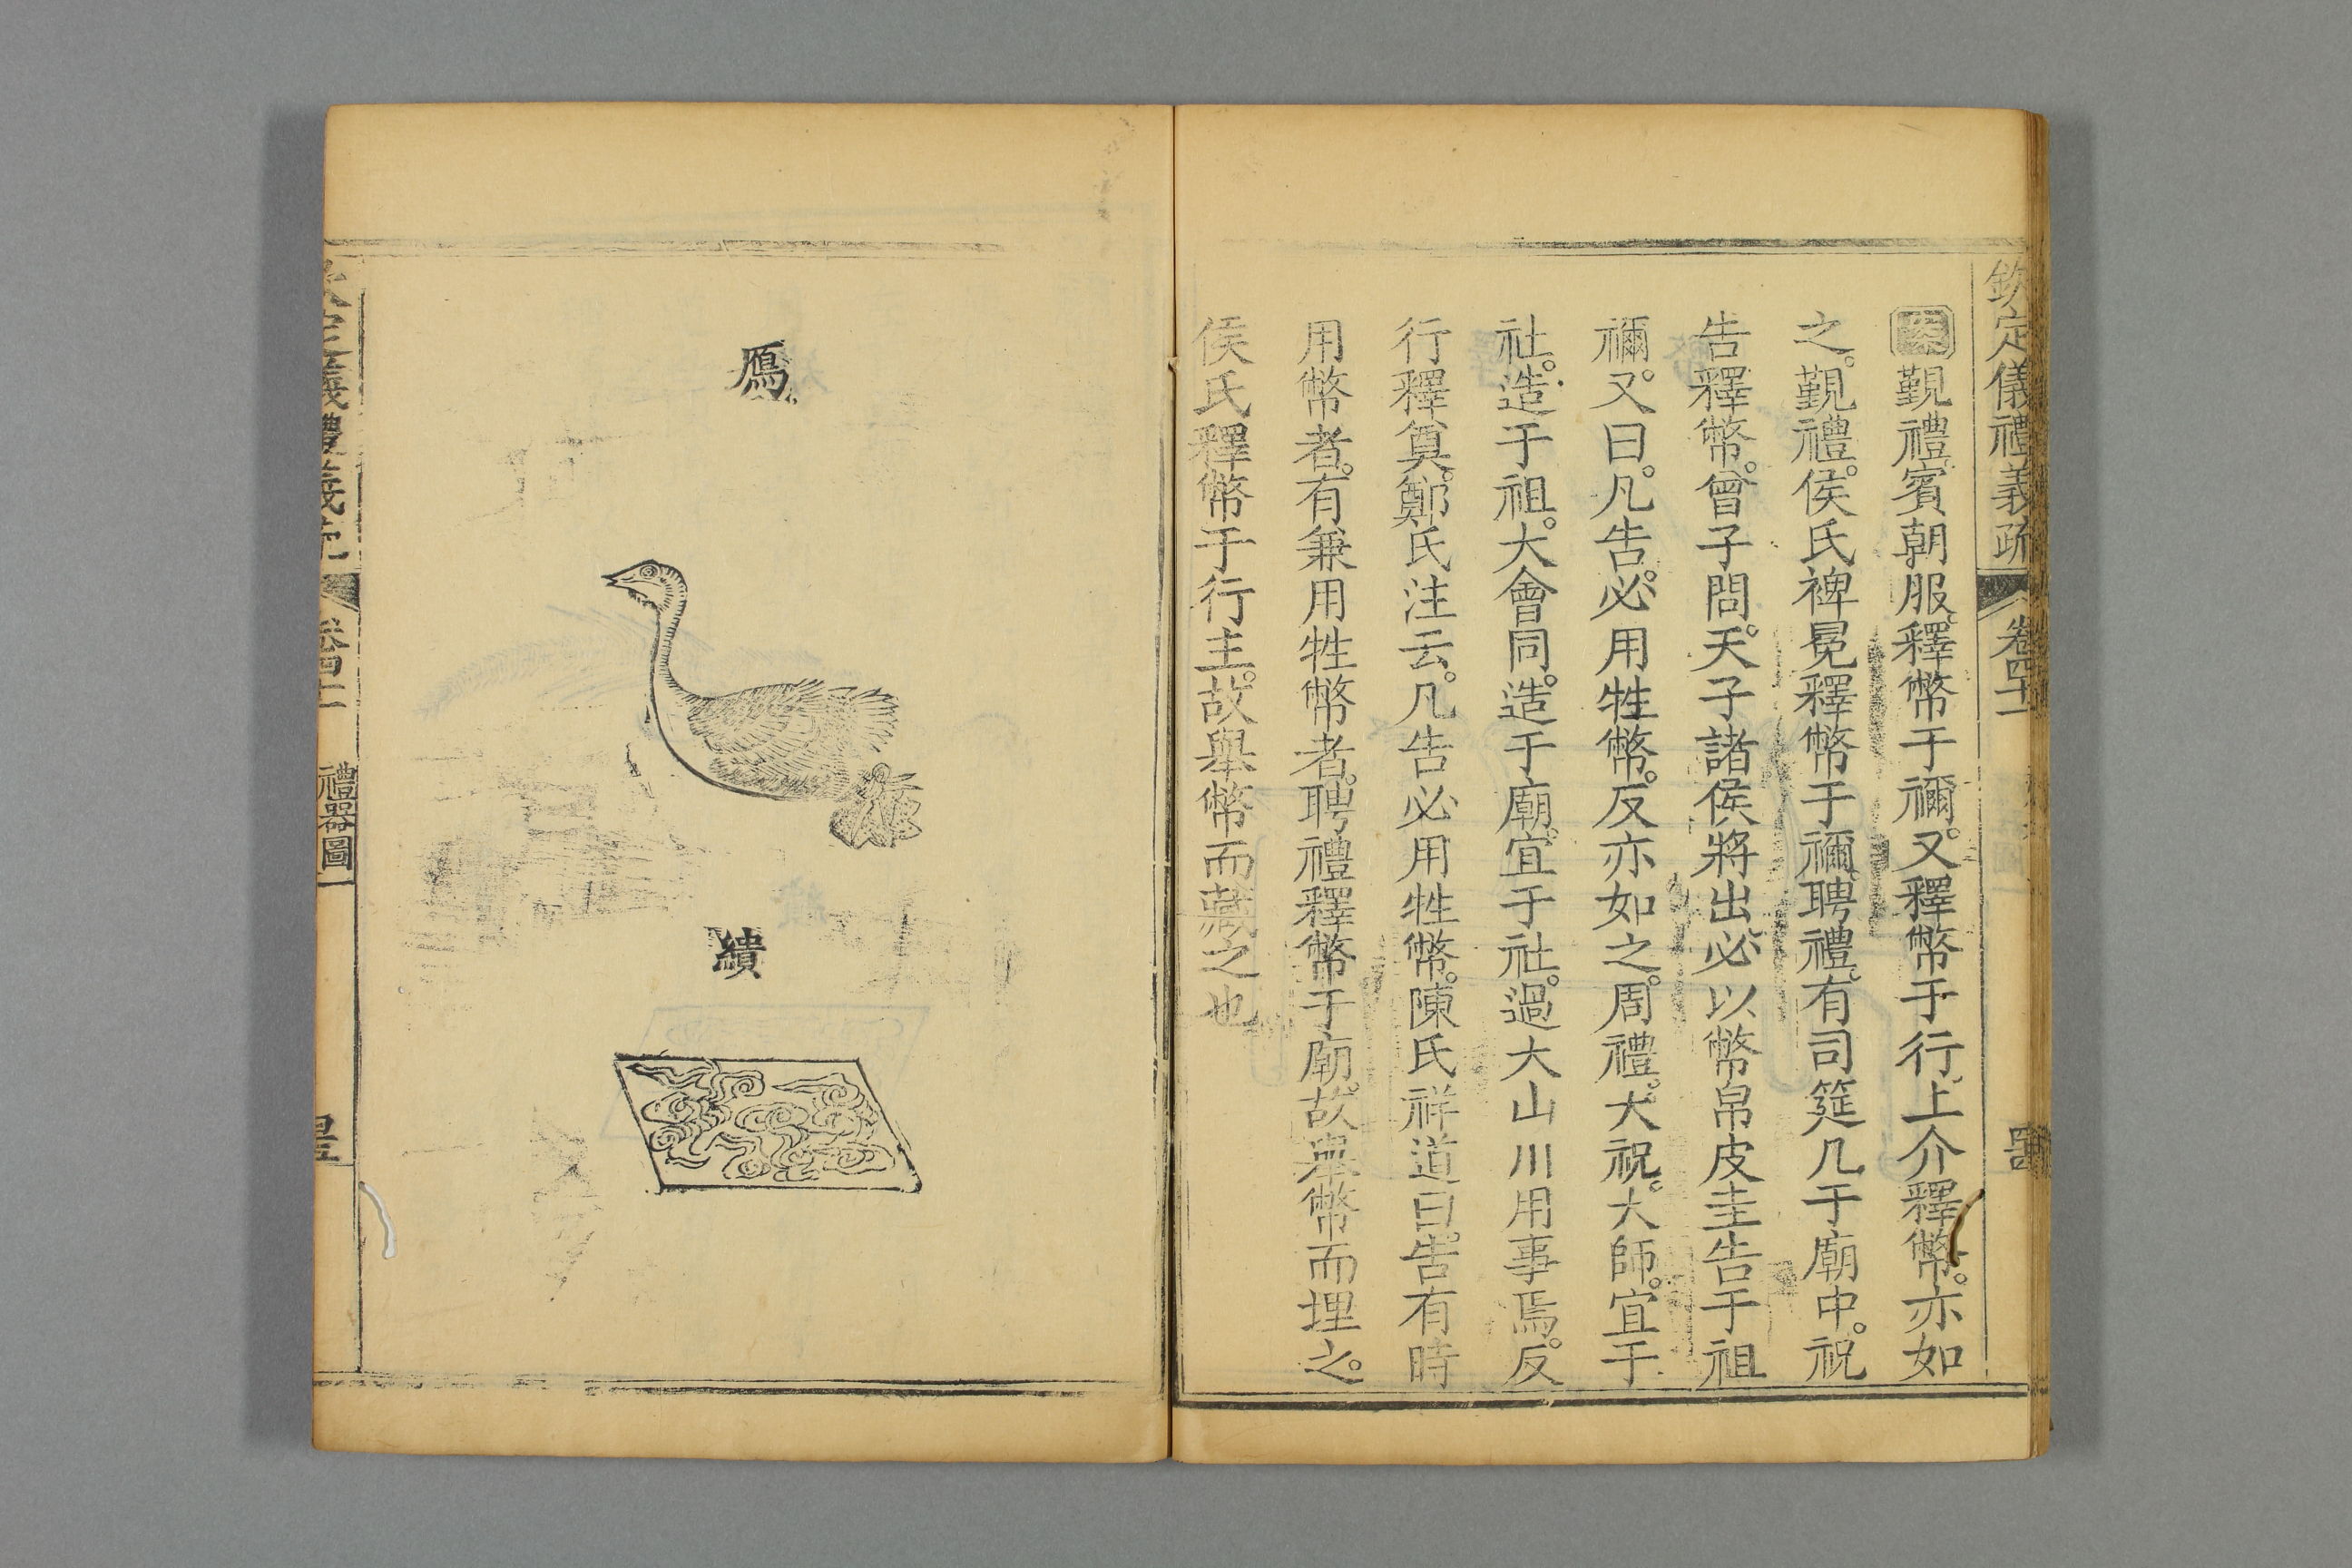 欽定儀禮義疏 卷四十一
案 覲禮賓朝服釋幣于禰。又釋幣于行。上介釋幣。亦如
之。覲禮。侯氏裨冕釋幣于禰。聘禮。有司筵几于廟中。祝
告釋幣。曾子問。天子諸侯將出。必以幣帛皮圭告于祖
禰。又曰。凡告。必用牲幣。反亦如之。周禮。大祝。大師。宜于
社。造于祖。大會同。造于廟。宜于社。過大山川用事焉。反
行釋奠。鄭氏注云。凡告必用牲幣。陳氏祥道曰。告有時
用幣者。有兼用牲幣者。聘禮釋幣于廟。故舉幣而埋之。
侯氏釋幣于行主。故舉幣而藏之也
鴈
繢
禮器圖一